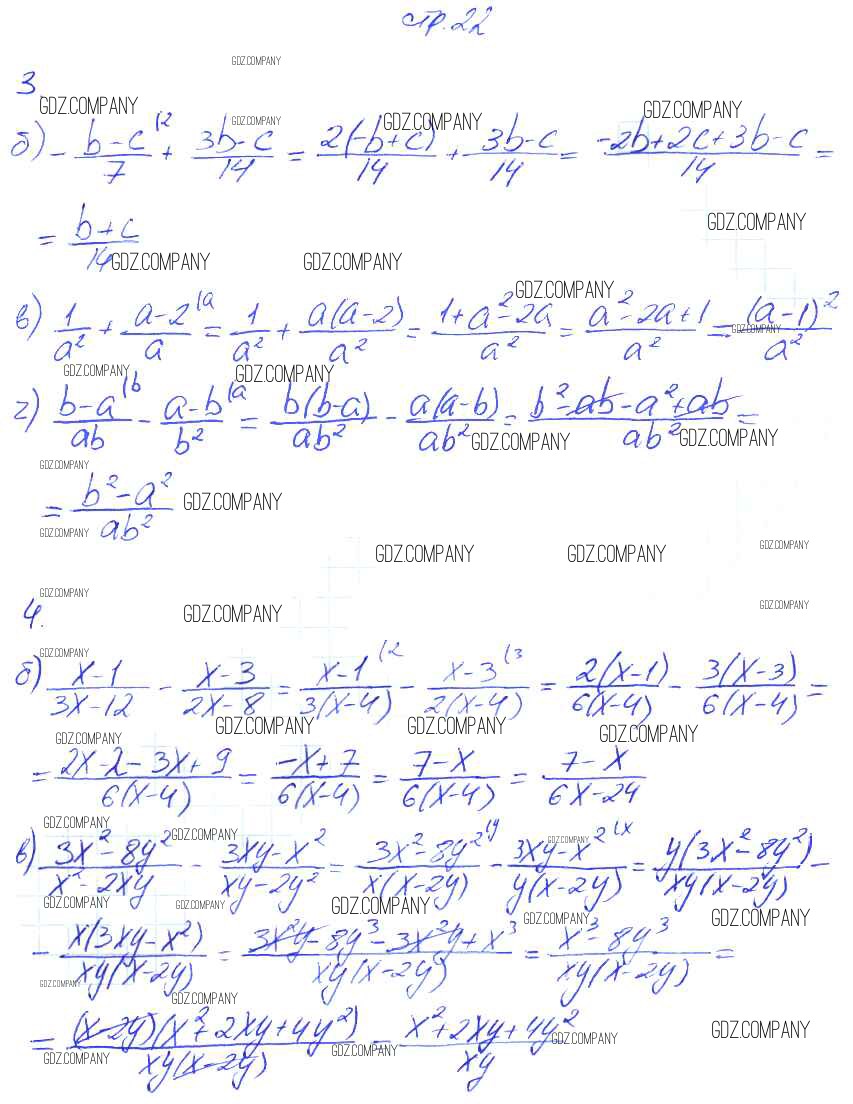 стр. 22
GDZ.COMPANY
3.
GDZ.COMPANY GDZ.COMPANY GDZ.COMPANY GDZ.COMPANY
б) - (b-c)/7 (2 + (3b-c)/14 = 2(-b+c)/14 + (3b-c)/14 = (-2b+2c+3b-c)/14 =
GDZ.COMPANY
= (b+c)/14
GDZ.COMPANY GDZ.COMPANY
GDZ.COMPANY
в) 1/a² + (a-2)/a (a = 1/a² + a(a-2)/a² = (1+a²-2a)/a² = (a²-2a+1)/a² = (a-1)²/a²
GDZ.COMPANY
GDZ.COMPANY GDZ.COMPANY
г) (b-a)/ab (b - (a-b)/b² (a = b(b-a)/ab² - a(a-b)/ab² = (b²-ab-a²+ab)/ab² =
GDZ.COMPANY GDZ.COMPANY
GDZ.COMPANY
= (b²-a²)/ab²
GDZ.COMPANY
GDZ.COMPANY
GDZ.COMPANY GDZ.COMPANY GDZ.COMPANY
GDZ.COMPANY
4.
GDZ.COMPANY GDZ.COMPANY
GDZ.COMPANY
б) (x-1)/(3x-12) - (x-3)/(2x-8) = (x-1)/3(x-4) (2 - (x-3)/2(x-4) (3 = 2(x-1)/6(x-4) - 3(x-3)/6(x-4) =
GDZ.COMPANY GDZ.COMPANY GDZ.COMPANY GDZ.COMPANY
= (2x-2-3x+9)/6(x-4) = (-x+7)/6(x-4) = (7-x)/6(x-4) = (7-x)/(6x-24)
GDZ.COMPANY GDZ.COMPANY GDZ.COMPANY
в) (3x²-8y²)/(x²-2xy) - (3xy-x²)/(xy-2y²) = (3x²-8y²)/x(x-2y) (y - (3xy-x²)/y(x-2y) (x = y(3x²-8y²)/xy(x-2y) -
GDZ.COMPANY GDZ.COMPANY GDZ.COMPANY GDZ.COMPANY GDZ.COMPANY
- x(3xy-x²)/xy(x-2y) = (3x²y-8y³-3x²y+x³)/xy(x-2y) = (x³-8y³)/xy(x-2y) =
GDZ.COMPANY
GDZ.COMPANY
= (x-2y)(x²+2xy+4y²)/xy(x-2y) = (x²+2xy+4y²)/xy
GDZ.COMPANY GDZ.COMPANY GDZ.COMPANY GDZ.COMPANY